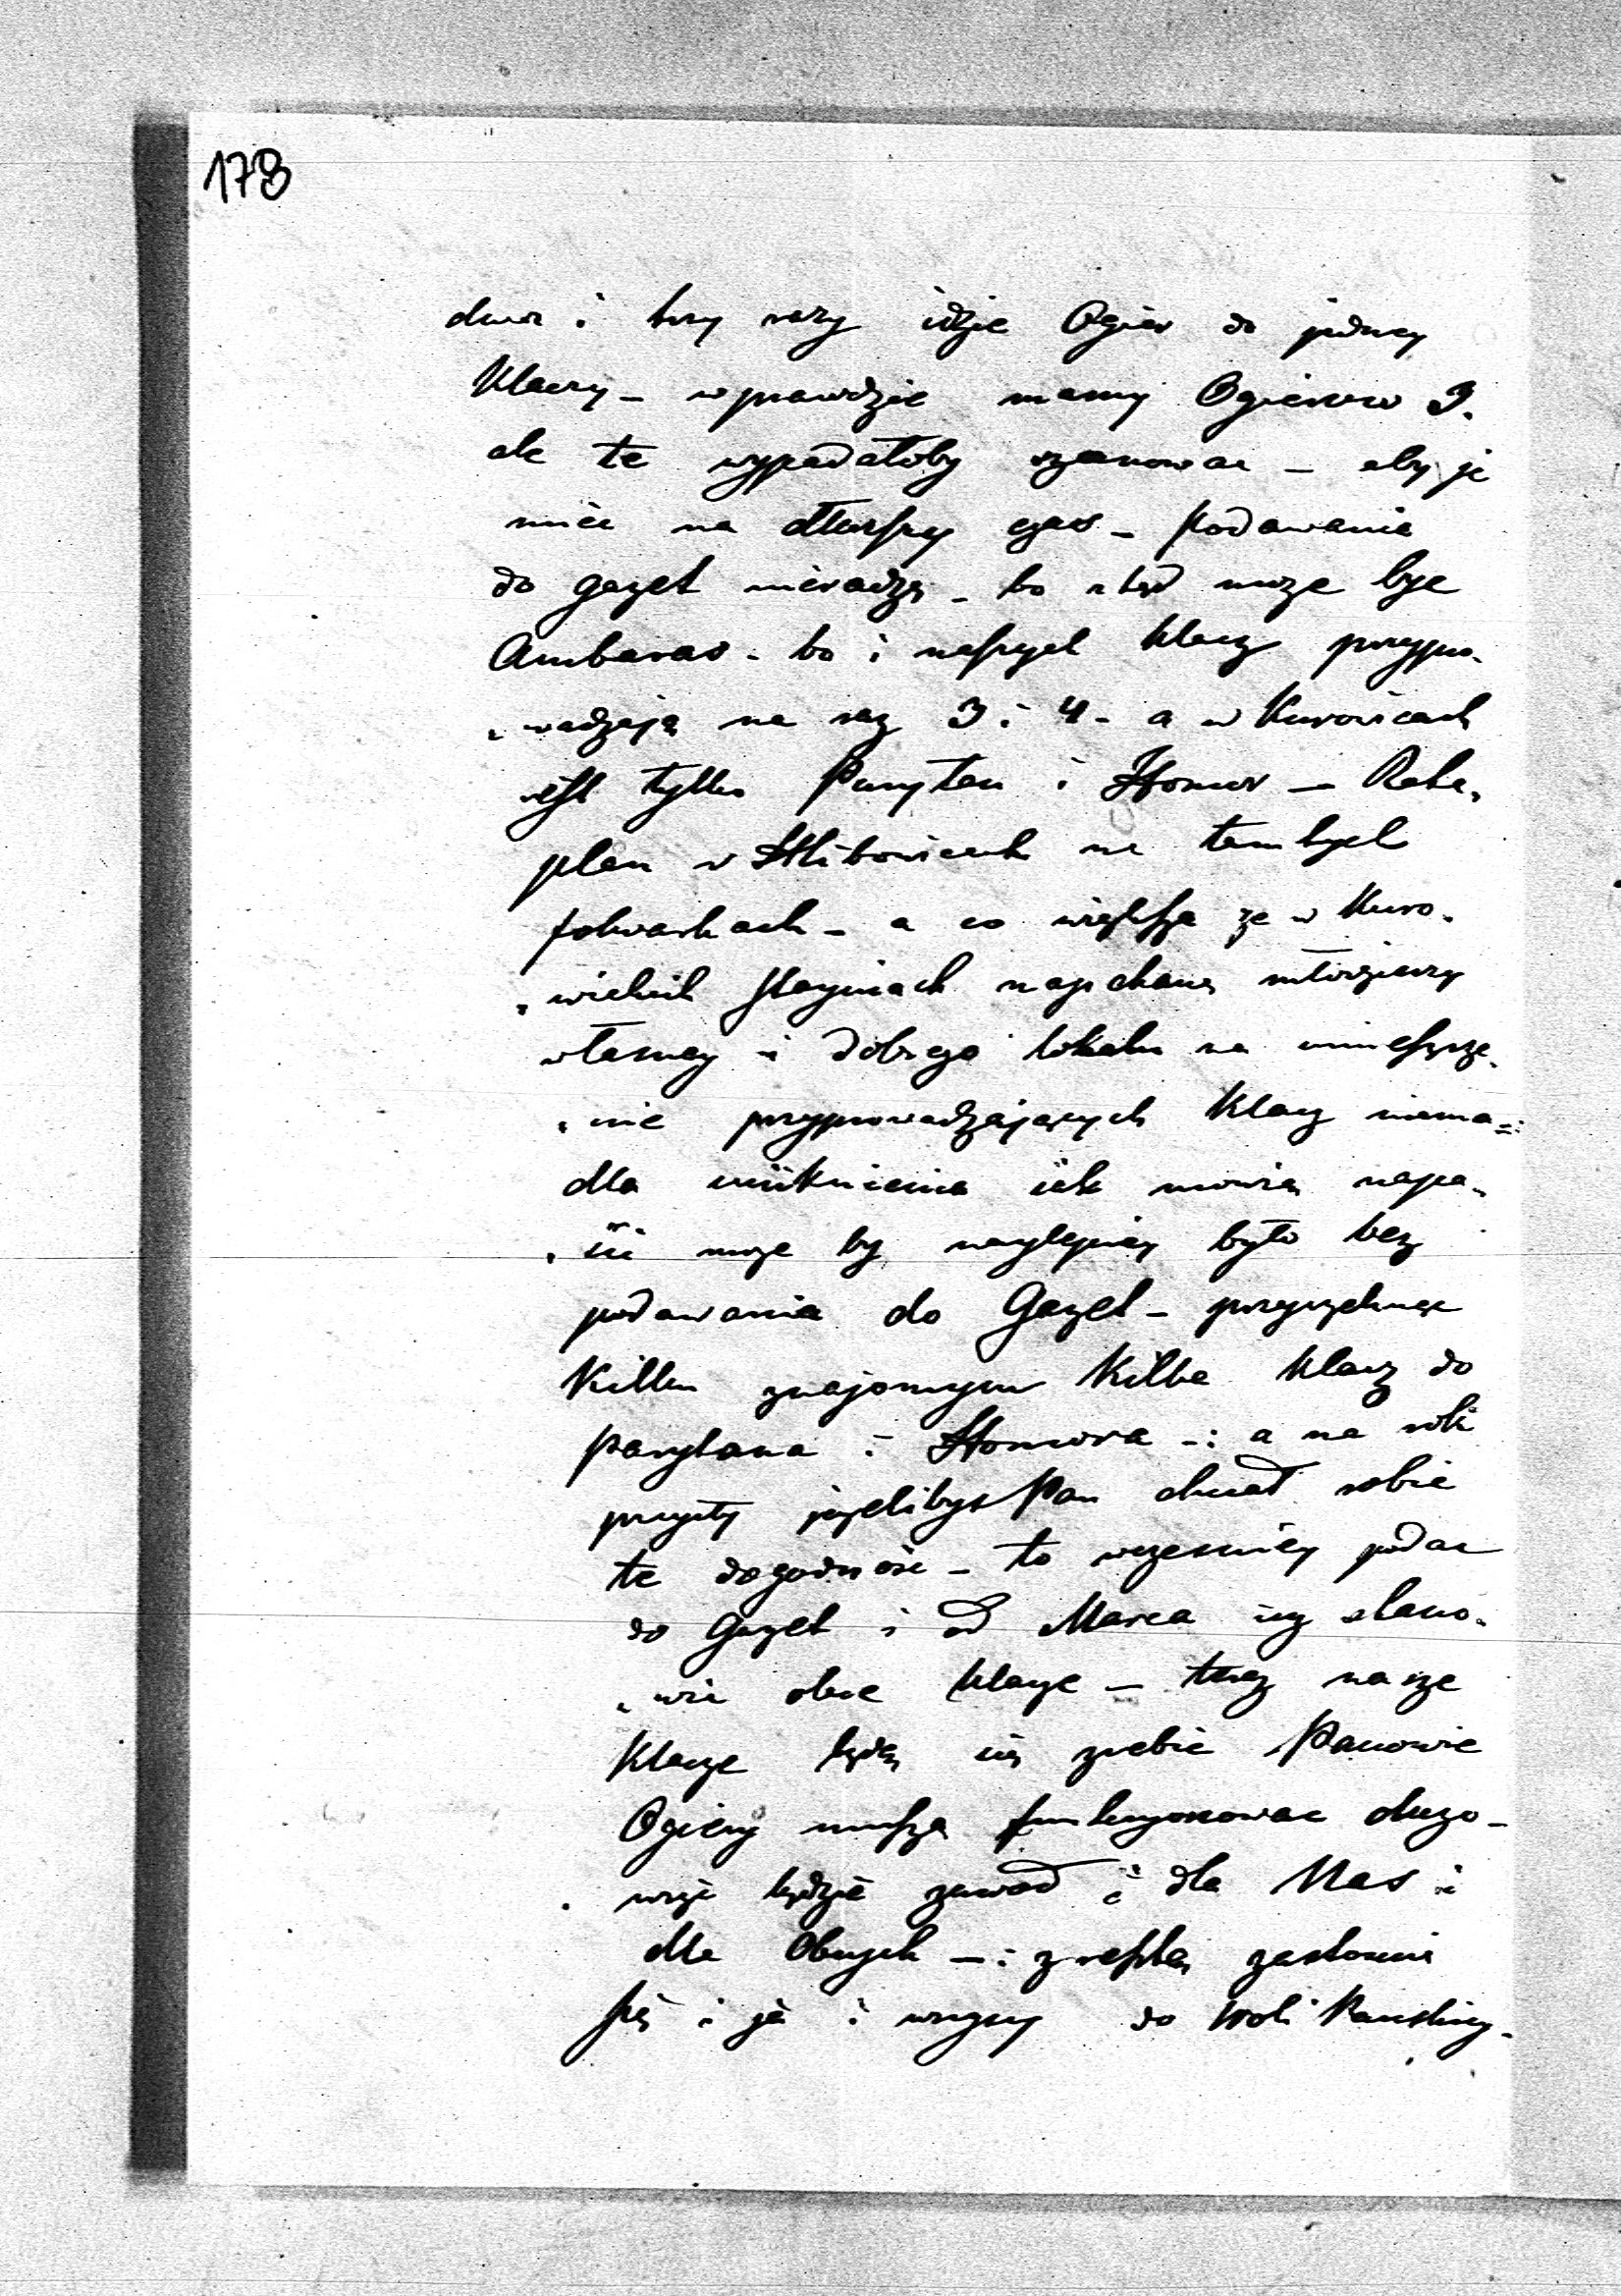 178
dwa i trzy razy idzie Ogier do jedney
Klaczy – wprawdzie mamy Ogierow 3.
ale te wypadałoby szanowac – aby je
miec na dłuższy czas – podawania
do gazet nieradzę – bo ztąd moze byc
Ambaras – bo i naszych klacz przypro„
„wadzają na raz 3 i 4 – a w Kurowicach
jest tylko Purytan i Homer – Rata„
plan w Hlibowicach na tamtych
folwarkach – a co większa ze w Kuro„
„wickich stayniach napchana młodziezy
własney i dobrego lokalu na umieszcze„
„nie przyprowadzających klacz niema –:
dla uniknienia jak mowią napa„
„sci moze by naylepiey było bez
podawania do Gazet – przyrzeknąc
Kilku znajomym Kilka klacz do
Purytana i Homera –: a na rok
przyszły jeżelibys Pan chciał robic
te dogodnosc – to wczesniey podac
do Gazet i od Marca juz stano„
„wic obce klacze – teraz nasze
Klacze będą się zrebic Panowie
Ogiery muszą funkcyonowac
więc będzie zawod i dla Nas i
dla Obcych –: zresztą zastosuie
się i ja i wszyscy do Woli Panskiey –